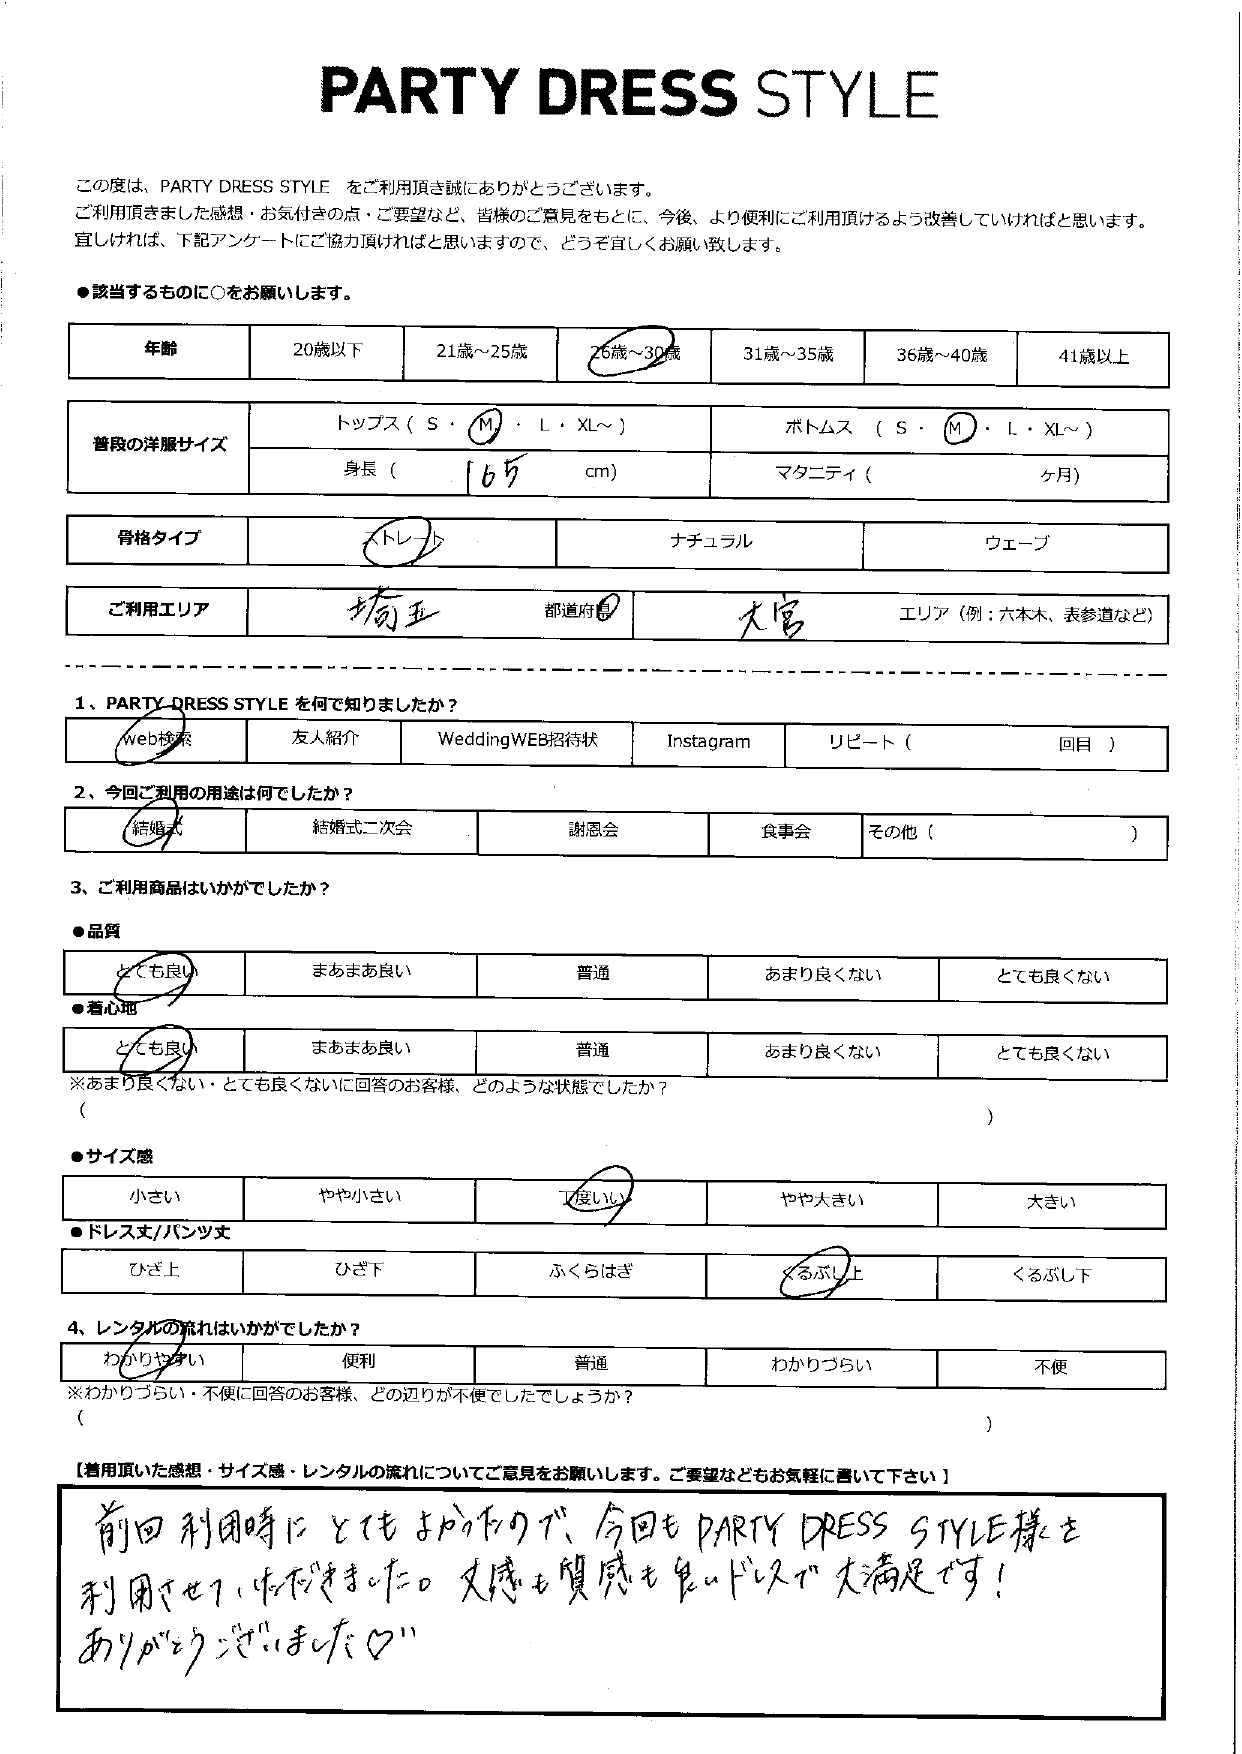 PARTY DRESS STYLE
この度は、PARTY DRESS STYLE をご利用頂き誠にありがとうございます。
ご利用頂きました感想・お気付きの点・ご要望など、皆様のご意見をもとに、今後、より便利にご利用頂けるよう改善していければと思います。
宜しければ、下記アンケートにご協力頂ければと思いますので、どうぞ宜しくお願い致します。
●該当するものに○をお願いします。
年齢 20歳以下 21歳～25歳 26歳～30歳 31歳～35歳 36歳～40歳 41歳以上
普段の洋服サイズ トップス ( S ・ M ・ L ・ XL～ ) ボトムス ( S ・ M ・ L ・ XL～ )
身長 ( 165 cm) マタニティ ( ヶ月)
骨格タイプ ストレート ナチュラル ウェーブ
ご利用エリア 埼玉 都道府県 大宮 エリア（例：六本木、表参道など）
1、PARTY DRESS STYLE を何で知りましたか？
web検索 友人紹介 WeddingWEB招待状 Instagram リピート ( 回目 )
2、今回ご利用の用途は何でしたか？
結婚式 結婚式二次会 謝恩会 食事会 その他 ( )
3、ご利用商品はいかがでしたか？
●品質
とても良い まあまあ良い 普通 あまり良くない とても良くない
●着心地
とても良い まあまあ良い 普通 あまり良くない とても良くない
※あまり良くない・とても良くないに回答のお客様、どのような状態でしたか？
( )
●サイズ感
小さい やや小さい 丁度いい やや大きい 大きい
●ドレス丈/パンツ丈
ひざ上 ひざ下 ふくらはぎ くるぶし上 くるぶし下
4、レンタルの流れはいかがでしたか？
わかりやすい 便利 普通 わかりづらい 不便
※わかりづらい・不便に回答のお客様、どの辺りが不便でしたでしょうか？
( )
【着用頂いた感想・サイズ感・レンタルの流れについてご意見をお願いします。ご要望などもお気軽に書いて下さい】
前回利用時にとてもよかったので、今回もPARTY DRESS STYLE様を
利用させていただきました。丈感も質感も良いドレスで大満足です！
ありがとうございました♡